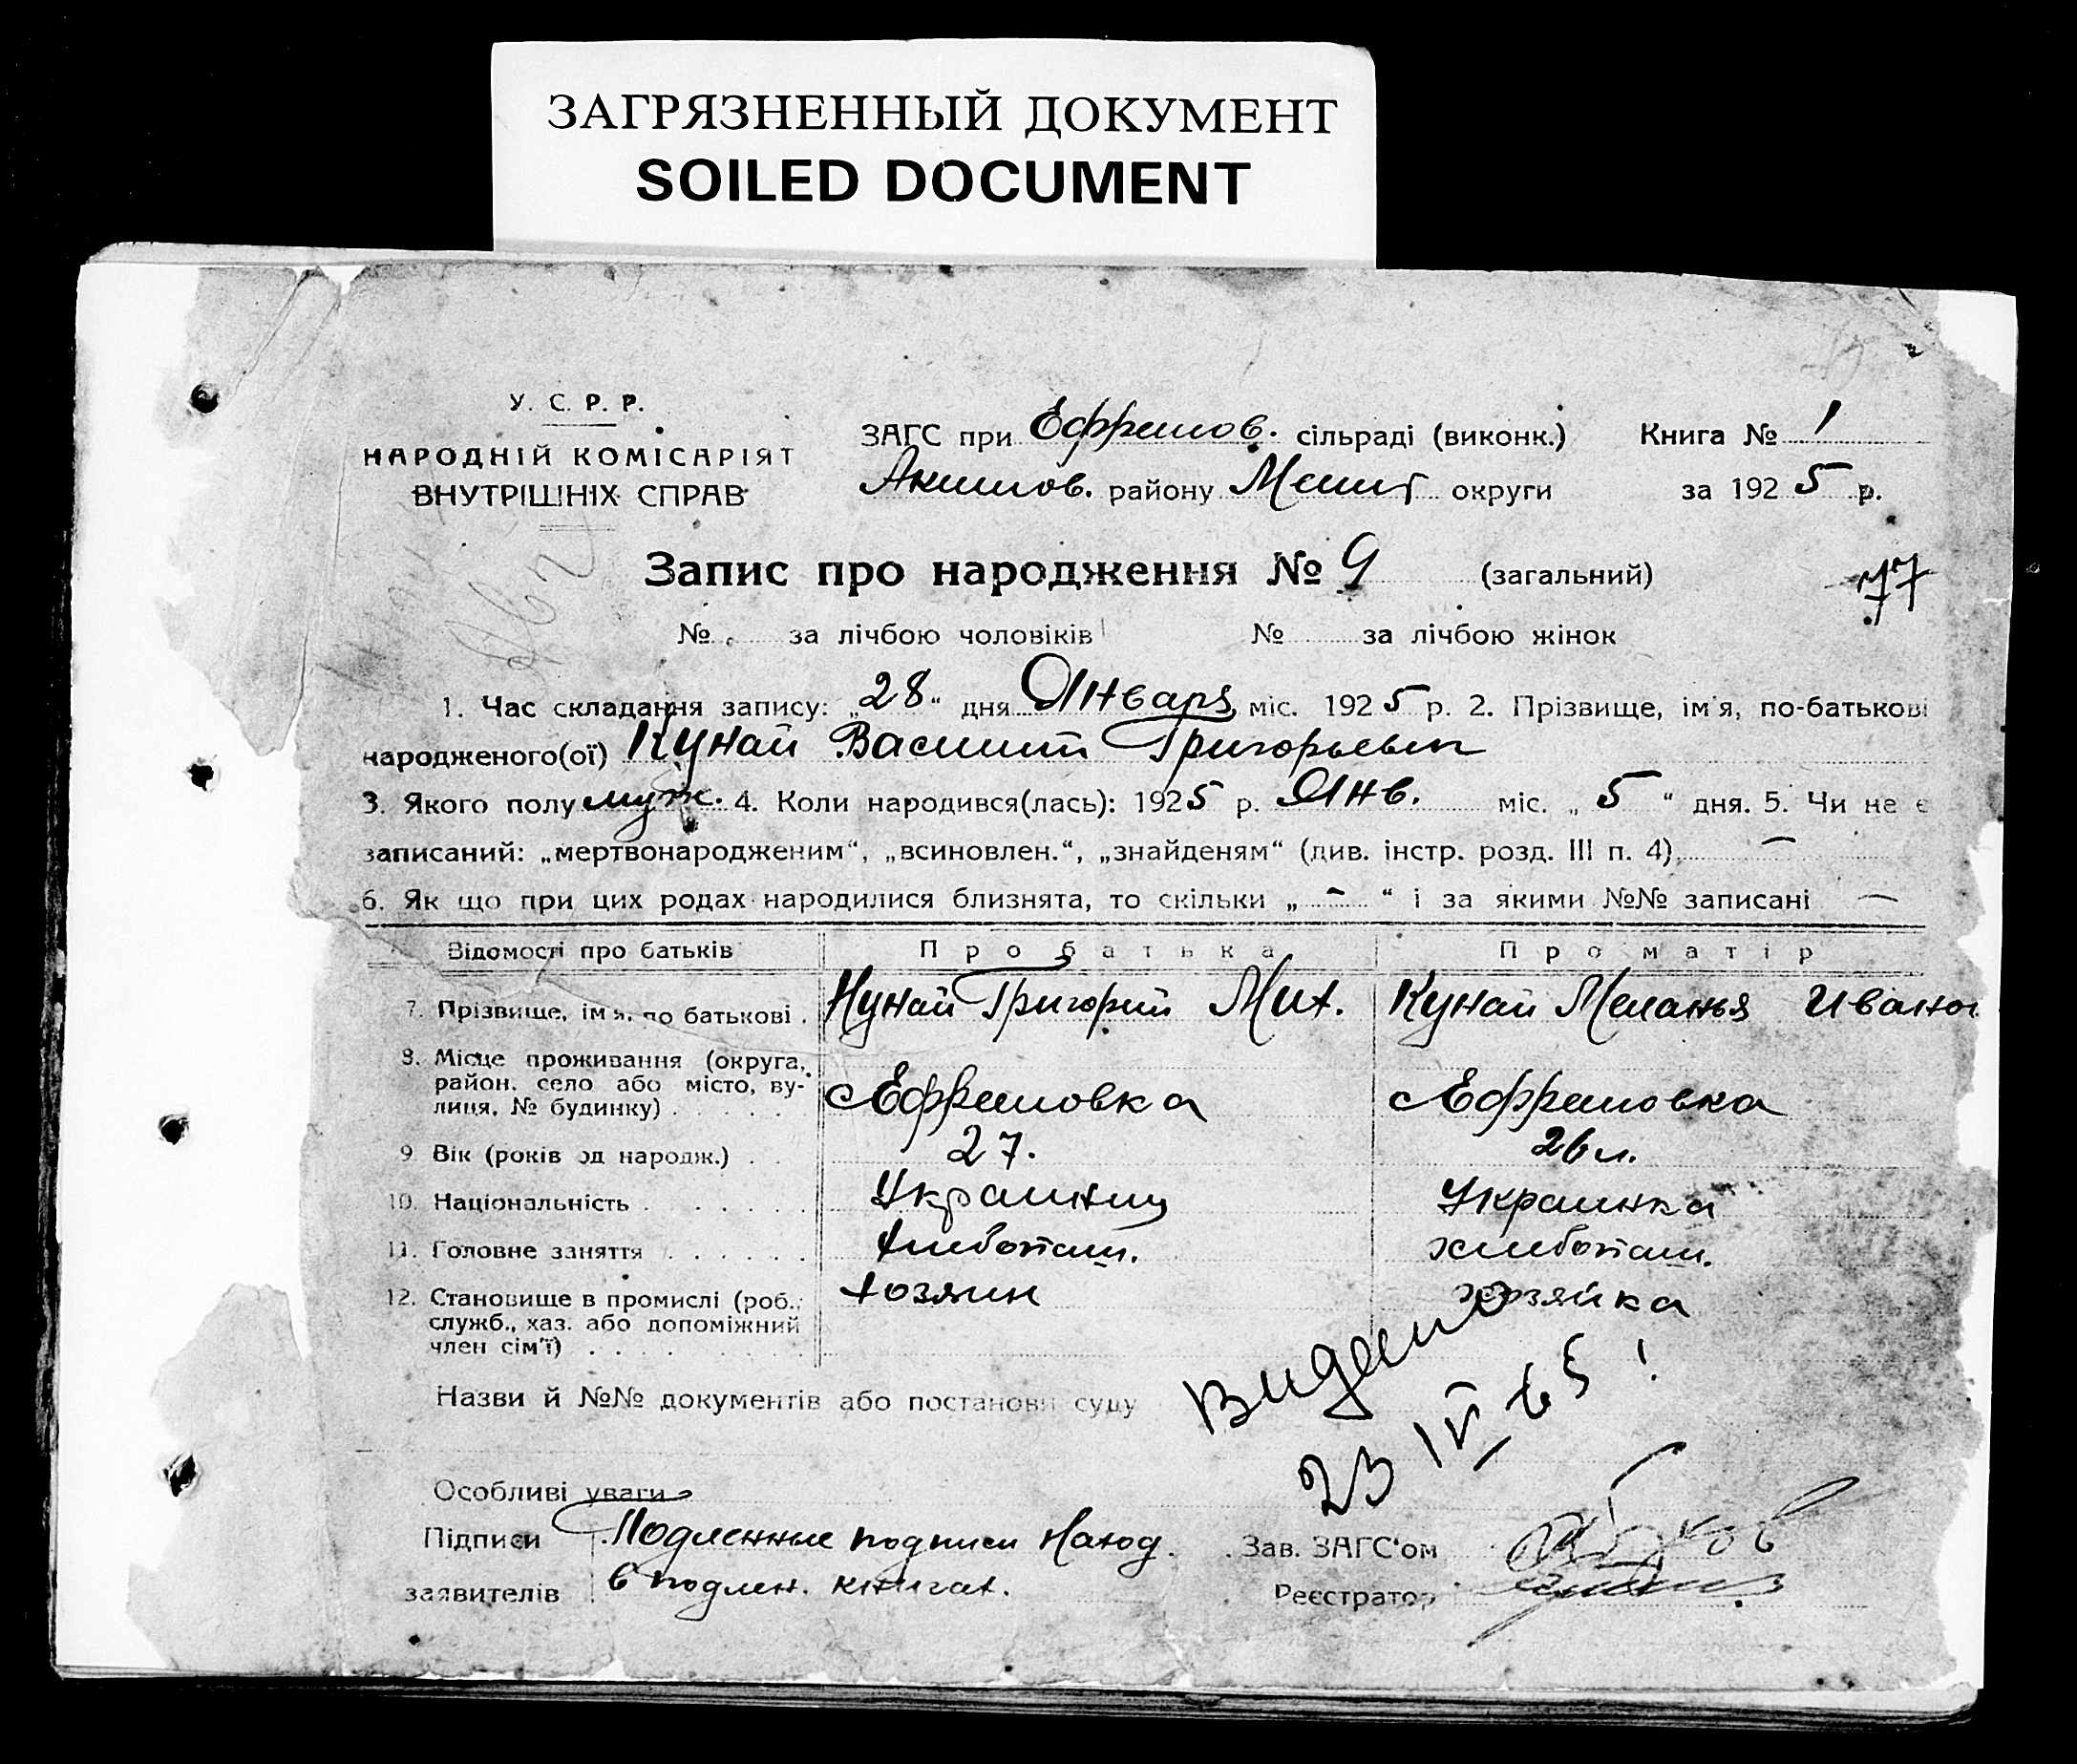 ЗАГРЯЗНЕННЫЙ ДОКУМЕНТ
SOILED DOCUMENT
У. С. Р. Р.
НАРОДНІЙ КОМІСАРІЯТ
ВНУТРІШНІХ СПРАВ
ЗАГС при Ефремов. сільраді (виконк.) Книга № 1
Акимов. району Мелит округи за 1925 р.
Запис про народження № 9 (загальний)
77
№ за лічбою чоловіків № за лічбою жінок
1. Час складання запису: „28“ дня Января міс. 1925 р. 2. Прізвище, ім'я, по-батькові
народженого(ої) Кунай Василий Григорьевич
3. Якого полу муж. 4. Коли народився(лась): 1925 р. Янв. міс. „5“ дня. 5. Чи не є
записаний: „мертвонародженим“, „всиновлен.“, „знайденям“ (див. інстр. розд. III п. 4). —
6. Як що при цих родах народилися близнята, то скільки „ — “ і за якими №№ записані —
Відомості про батьків Про батька Про матір
7. Прізвище, ім'я, по батькові . Кунай Григорий Мих. Кунай Меланья Иванов
8. Місце проживання (округа,
район, село або місто, ву-
лиця, № будинку) . . . . . с Ефремовка с Ефремовка
9. Вік (років од народж.) . . 27. 26 л.
10. Національність . . . . . . . Украинец Украинка
11. Головне заняття . . . . . . Хлебопаш. хлебопаш.
12. Становище в промислі (роб.,
служб., хаз. або допоміжний
член сім'ї) . . . . . . . . . Хозяин хозяйка
Видано
23 IV 65 !
Назви й №№ документів або постанови суду
Особливі уваги
Підписи Подленные подписи наход.
заявителів в подлен. книгах.
Зав. ЗАГС'ом
Реєстратор